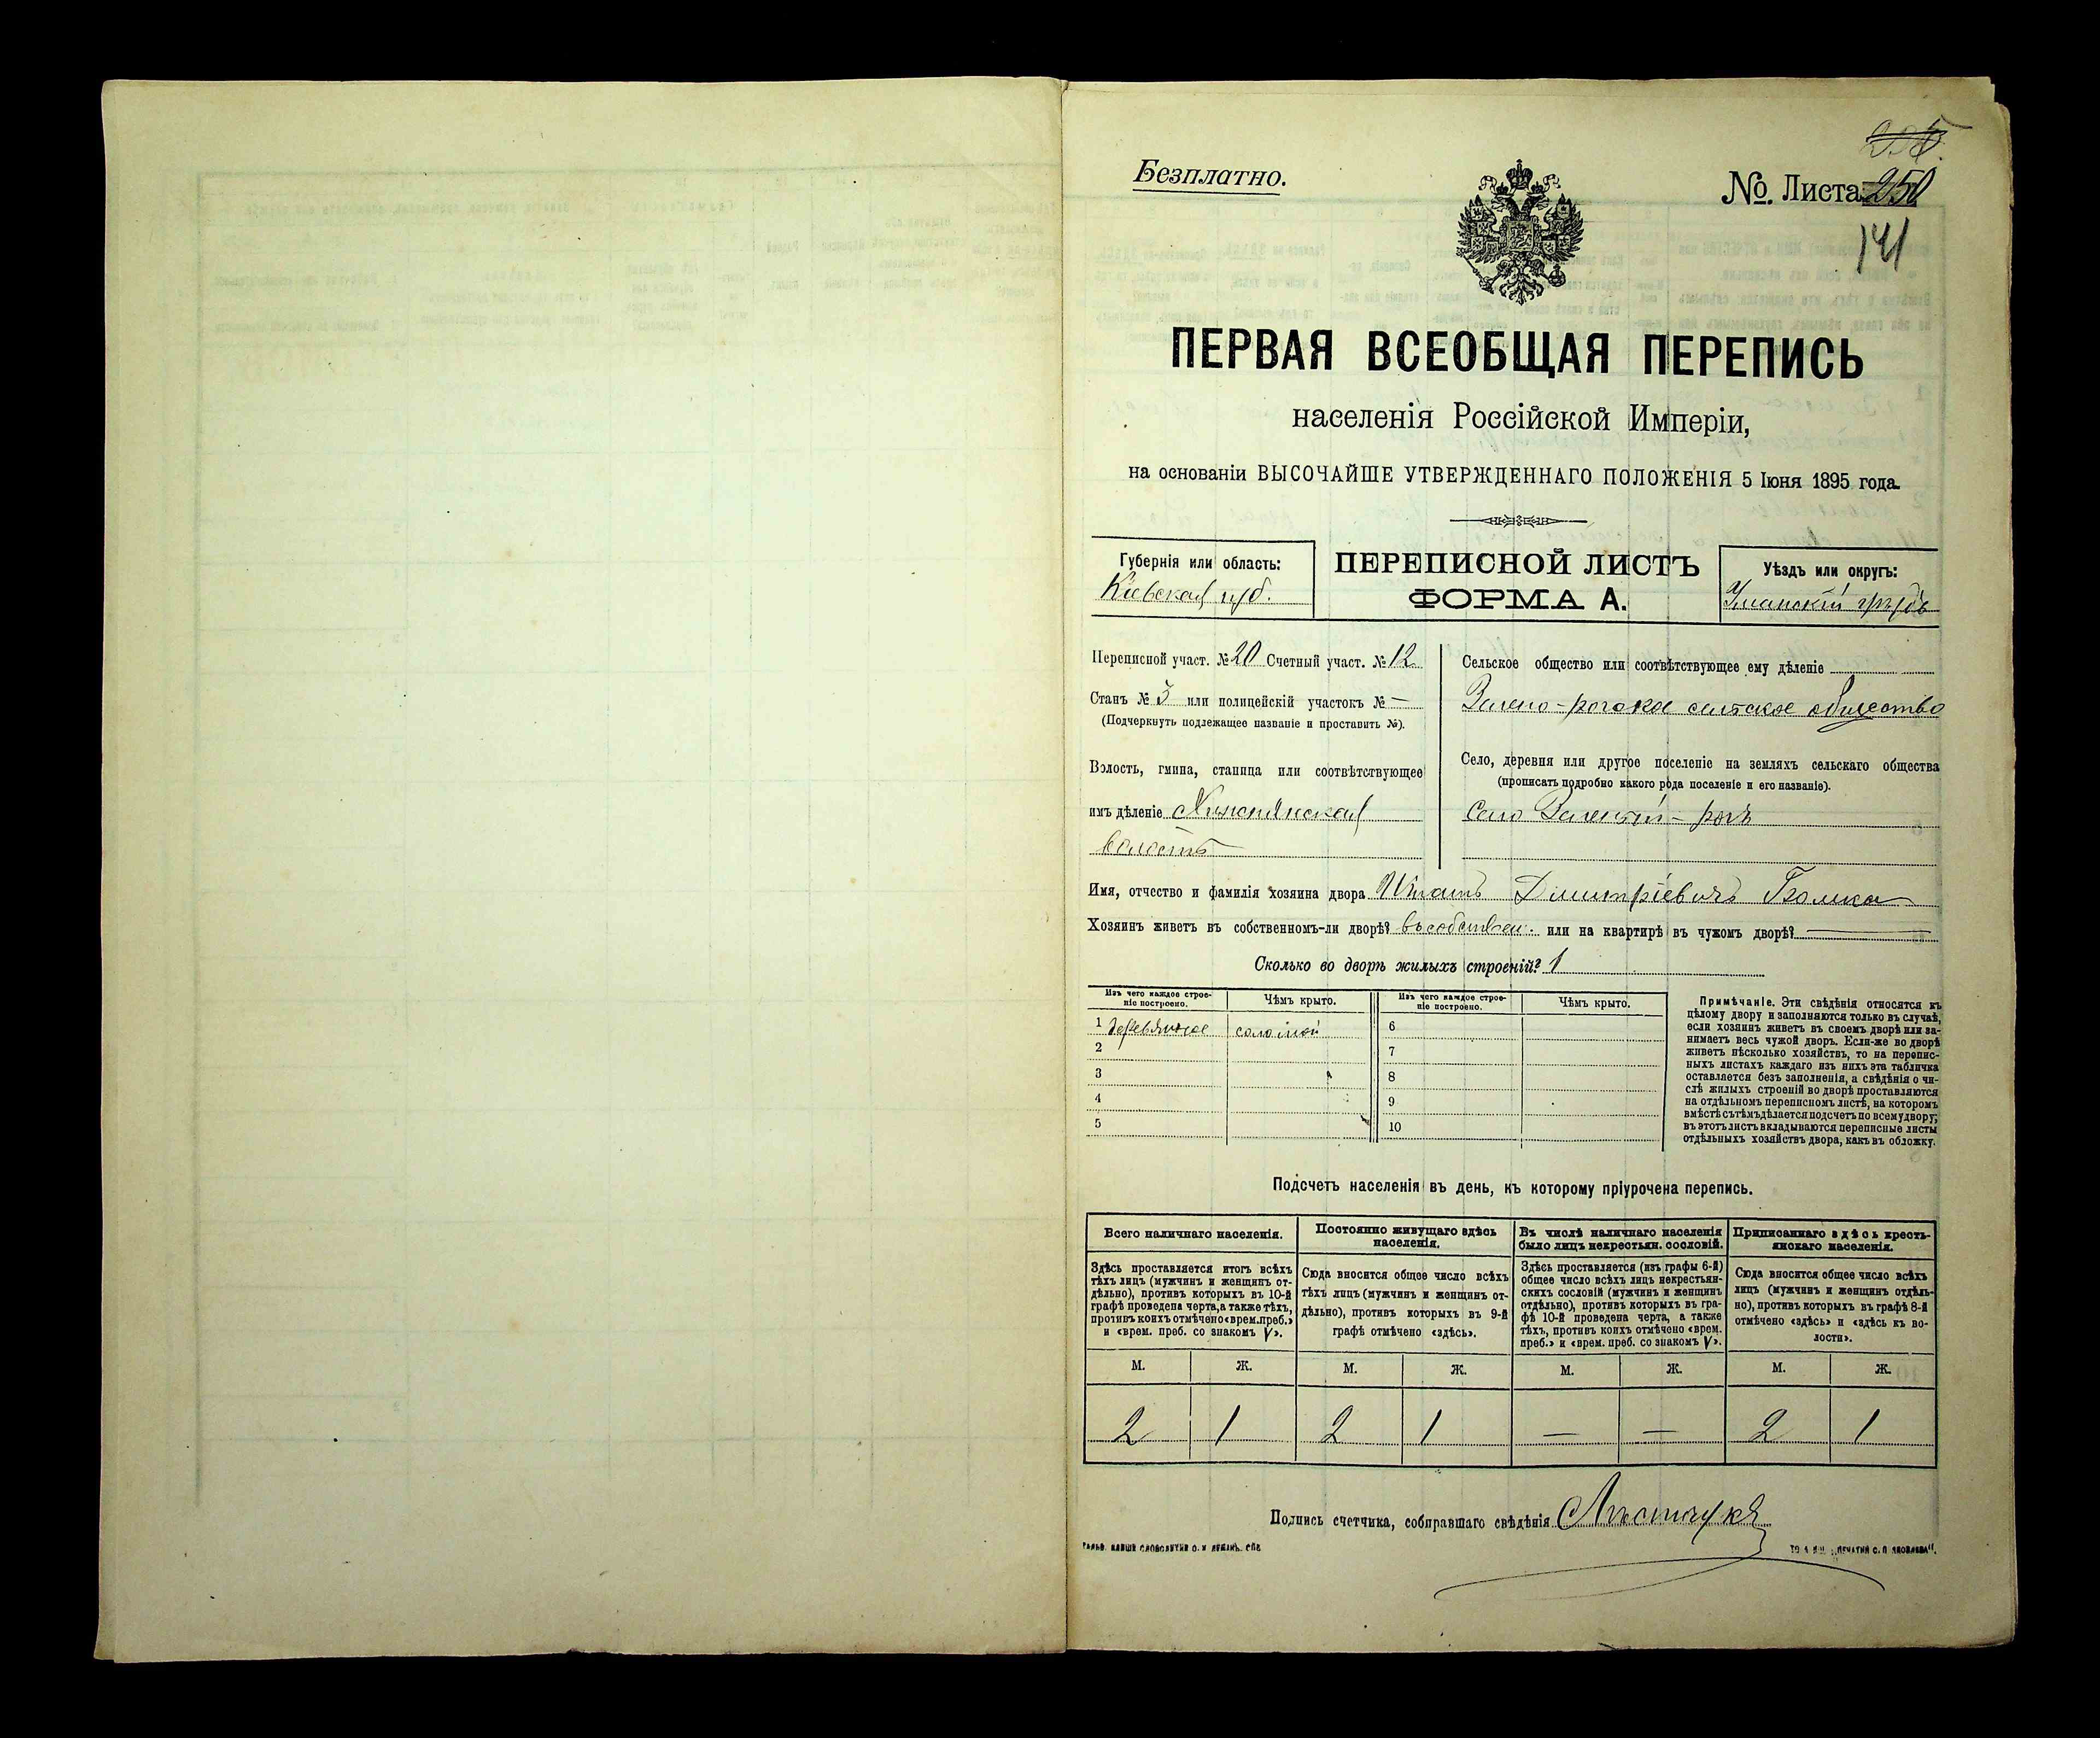 Безплатно.
№. Листа 250
141
ПЕРВАЯ ВСЕОБЩАЯ ПЕРЕПИСЬ
населенія Россійской Имперіи,
на основаніи ВЫСОЧАЙШЕ УТВЕРЖДЕННАГО ПОЛОЖЕНІЯ 5 Іюня 1895 года.
Губернія или область:
Кіевская губ.
ПЕРЕПИСНОЙ ЛИСТЪ
ФОРМА А.
Уѣздъ или округъ:
Уманскій уѣздъ
Переписной участ. № 20 Счетный участ. № 12
Станъ № 3 или полицейскій участокъ № —
(Подчеркнуть подлежащее названіе и проставить №).
Волость, гмина, станица или соотвѣтствующее
имъ дѣленіе
волость
Сельское общество или соотвѣтствующее ему дѣленіе
Зелено-рогское сельское общество
Село, деревня или другое поселеніе на земляхъ сельскаго общества
(прописать подробно какого рода поселеніе и его названіе).
Село Зеленый-рогъ
Имя, отчество и фамилія хозяина двора Дмитріевичъ
Хозяинъ живетъ въ собственномъ-ли дворѣ? въ собствен. или на квартирѣ въ чужомъ дворѣ? —
Сколько во дворѣ жилыхъ строеній? 1
Изъ чего каждое строеніе построено.
Чѣмъ крыто.
Изъ чего каждое строеніе построено.
Чѣмъ крыто.
1 деревянное соломой
2
3
4
5
6
7
8
9
10
Примѣчаніе. Эти свѣдѣнія относятся къ
цѣлому двору и заполняются только въ случаѣ,
если хозяинъ живетъ въ своемъ дворѣ или за-
нимаетъ весь чужой дворъ. Если-же во дворѣ
живетъ нѣсколько хозяйствъ, то на перепис-
ныхъ листахъ каждаго изъ нихъ эта табличка
оставляется безъ заполненія, а свѣдѣнія о чи-
слѣ жилыхъ строеній во дворѣ проставляются
на отдѣльномъ переписномъ листѣ, на которомъ
вмѣстѣ съ тѣмъ дѣлается подсчетъ по всему двору;
въ этотъ листъ вкладываются переписные листы
отдѣльныхъ хозяйствъ двора, какъ въ обложку.
Подсчетъ населенія въ день, къ которому пріурочена перепись.
Всего наличнаго населенія.
Здѣсь проставляется итогъ всѣхъ
тѣхъ лицъ (мужчинъ и женщинъ от-
дѣльно), противъ которыхъ въ 10-й
графѣ проведена черта, а также тѣхъ,
противъ коихъ отмѣчено «врем. преб.»
и «врем. преб. со знакомъ V».
Постоянно живущаго здѣсь
населенія.
Сюда вносится общее число всѣхъ
тѣхъ лицъ (мужчинъ и женщинъ от-
дѣльно), противъ которыхъ въ 9-й
графѣ отмѣчено «здѣсь».
Въ числѣ наличнаго населенія
было лицъ некрестьян. сословій.
Здѣсь проставляется (изъ графы 6-й)
общее число всѣхъ лицъ некрестьян-
скихъ сословій (мужчинъ и женщинъ
отдѣльно), противъ которыхъ въ гра-
фѣ 10-й проведена черта, а также
тѣхъ, противъ коихъ отмѣчено «врем.
преб.» и «врем. преб. со знакомъ V».
Приписаннаго здѣсь кресть-
янскаго населенія.
Сюда вносится общее число всѣхъ
лицъ (мужчинъ и женщинъ отдѣль-
но), противъ которыхъ въ графѣ 8-й
отмѣчено «здѣсь» и «здѣсь къ во-
лости».
М. Ж. М. Ж. М. Ж. М. Ж.
2 1 2 1 — — 2 1
Подпись счетчика, собиравшаго свѣдѣнія